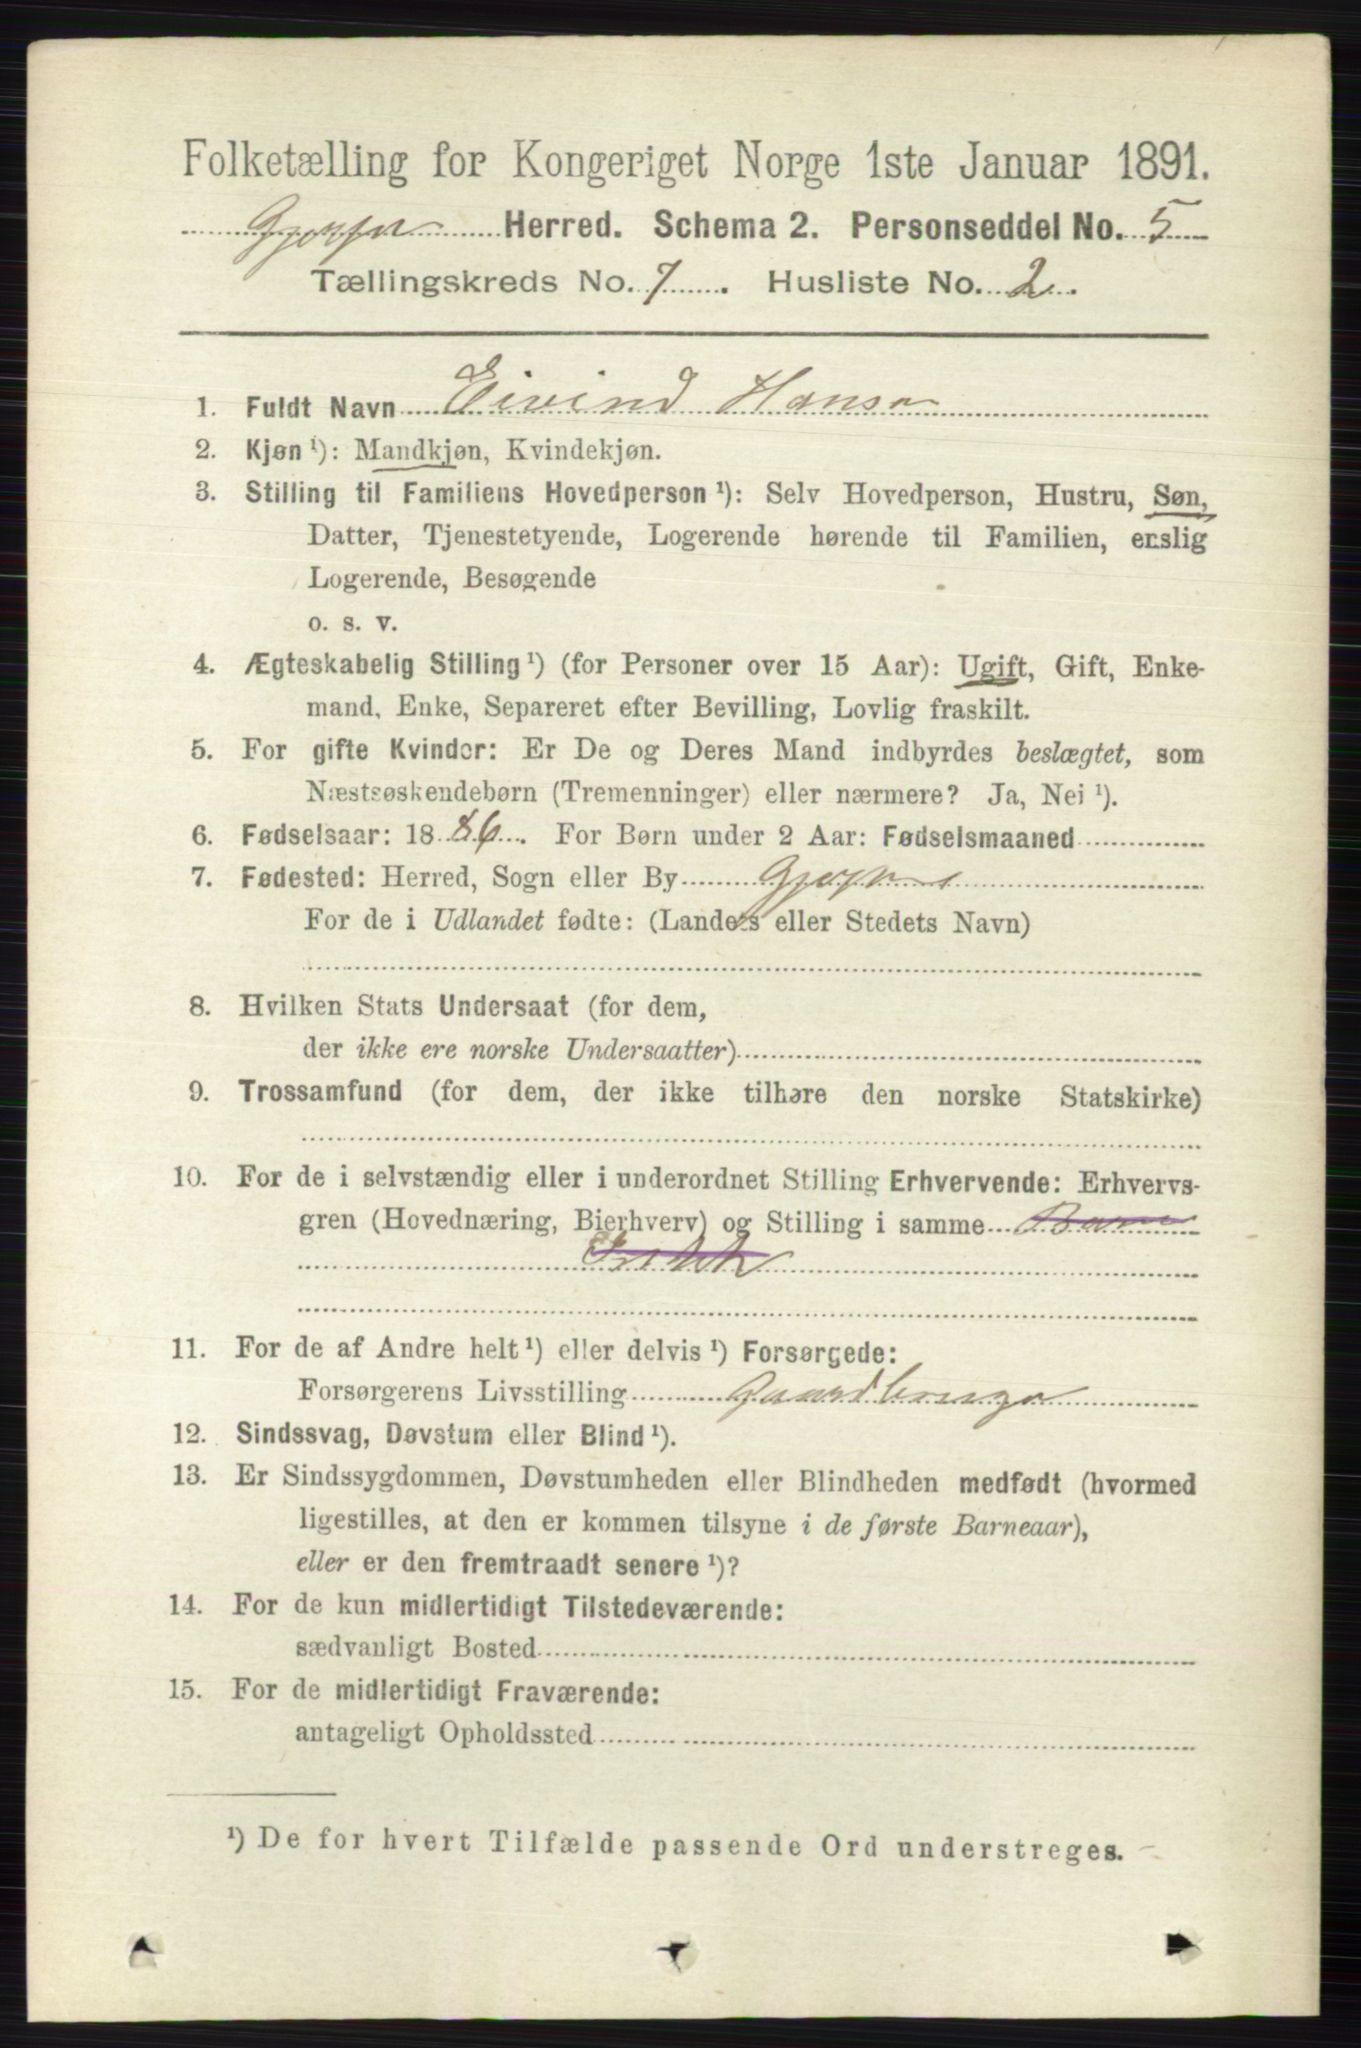 Folketælling for Kongeriget Norge 1ste Januar 1891.
Gjerpen Herred. Schema 2. Personseddel No. 5
Tællingskreds No. 7. Husliste No. 2.
1. Fuldt Navn Eivind Hansen
2. Kjøn ¹): Mandkjøn, Kvindekjøn.
3. Stilling til Familiens Hovedperson ¹): Selv Hovedperson, Hustru, Søn,
Datter, Tjenestetyende, Logerende hørende til Familien, enslig
Logerende, Besøgende
o. s. v.
4. Ægteskabelig Stilling ¹) (for Personer over 15 Aar): Ugift, Gift, Enke-
mand, Enke, Separeret efter Bevilling, Lovlig fraskilt.
5. For gifte Kvinder: Er De og Deres Mand indbyrdes beslægtet, som
Næstsøskendebørn (Tremenninger) eller nærmere? Ja, Nei ¹).
6. Fødselsaar: 1886. For Børn under 2 Aar: Fødselsmaaned
7. Fødested: Herred, Sogn eller By Gjerpen
For de i Udlandet fødte: (Landets eller Stedets Navn)
8. Hvilken Stats Undersaat (for dem,
der ikke ere norske Undersaatter)
9. Trossamfund (for dem, der ikke tilhøre den norske Statskirke)
10. For de i selvstændig eller i underordnet Stilling Erhvervende: Erhvervs-
gren (Hovednæring, Bierhverv) og Stilling i samme
11. For de af Andre helt ¹) eller delvis ¹) Forsørgede:
Forsørgerens Livsstilling Gaardbruger
12. Sindssvag, Døvstum eller Blind ¹).
13. Er Sindssygdommen, Døvstumheden eller Blindheden medfødt (hvormed
ligestilles, at den er kommen tilsyne i de første Barneaar),
eller er den fremtraadt senere ¹)?
14. For de kun midlertidigt Tilstedeværende:
sædvanligt Bosted
15. For de midlertidigt Fraværende:
antageligt Opholdssted
¹) De for hvert Tilfælde passende Ord understreges.